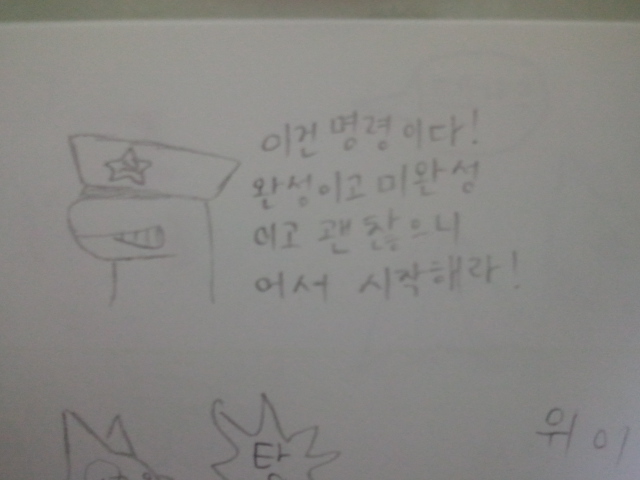 이건 명령이다!
완성이고 미완성
이고 괜찮으니
어서 시작해라!
탕
위이